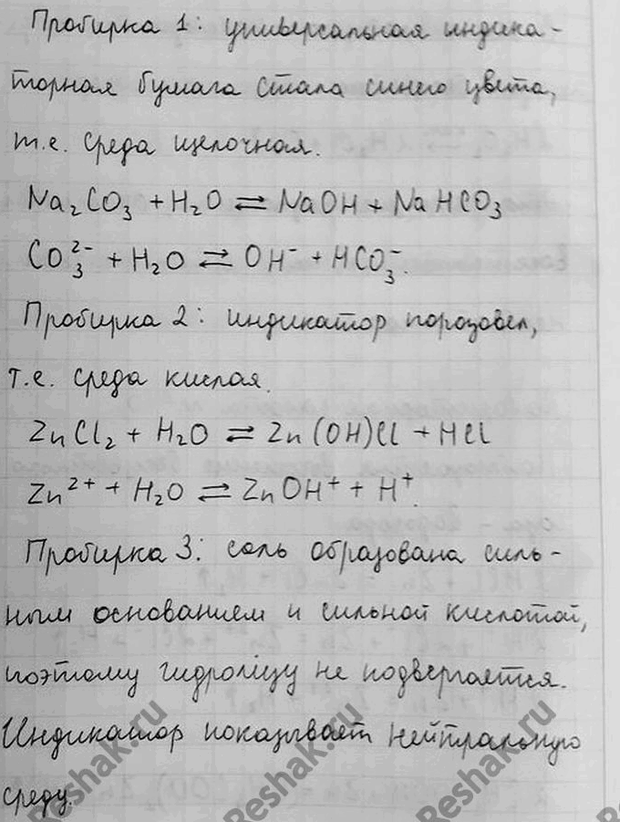 Пробирка 1: универсальная индика-
торная бумага стала синего цвета,
т.е. среда щелочная.
Na₂CO₃ + H₂O ⇄ NaOH + NaHCO₃
CO₃²⁻ + H₂O ⇄ OH⁻ + HCO₃⁻.
Пробирка 2: индикатор порозовел,
т.е. среда кислая.
ZnCl₂ + H₂O ⇄ Zn(OH)Cl + HCl
Zn²⁺ + H₂O ⇄ ZnOH⁺ + H⁺.
Пробирка 3: соль образована силь-
ным основанием и сильной кислотой,
поэтому гидролизу не подвергается.
Индикатор показывает нейтральную
среду.
Reshak.ru
Reshak.ru
Reshak.ru